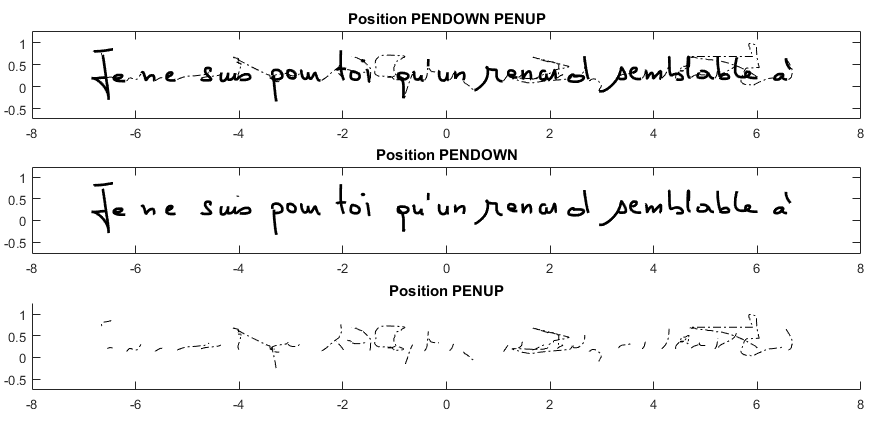 Position PENDOWN PENUP
1
0.5
0
-0.5
Je ne suis pour toi qu'un renard semblable à
-8 -6 -4 -2 0 2 4 6 8
Position PENDOWN
1
0.5
0
-0.5
Je ne suis pour toi qu'un renard semblable à
-8 -6 -4 -2 0 2 4 6 8
Position PENUP
1
0.5
0
-0.5
-8 -6 -4 -2 0 2 4 6 8